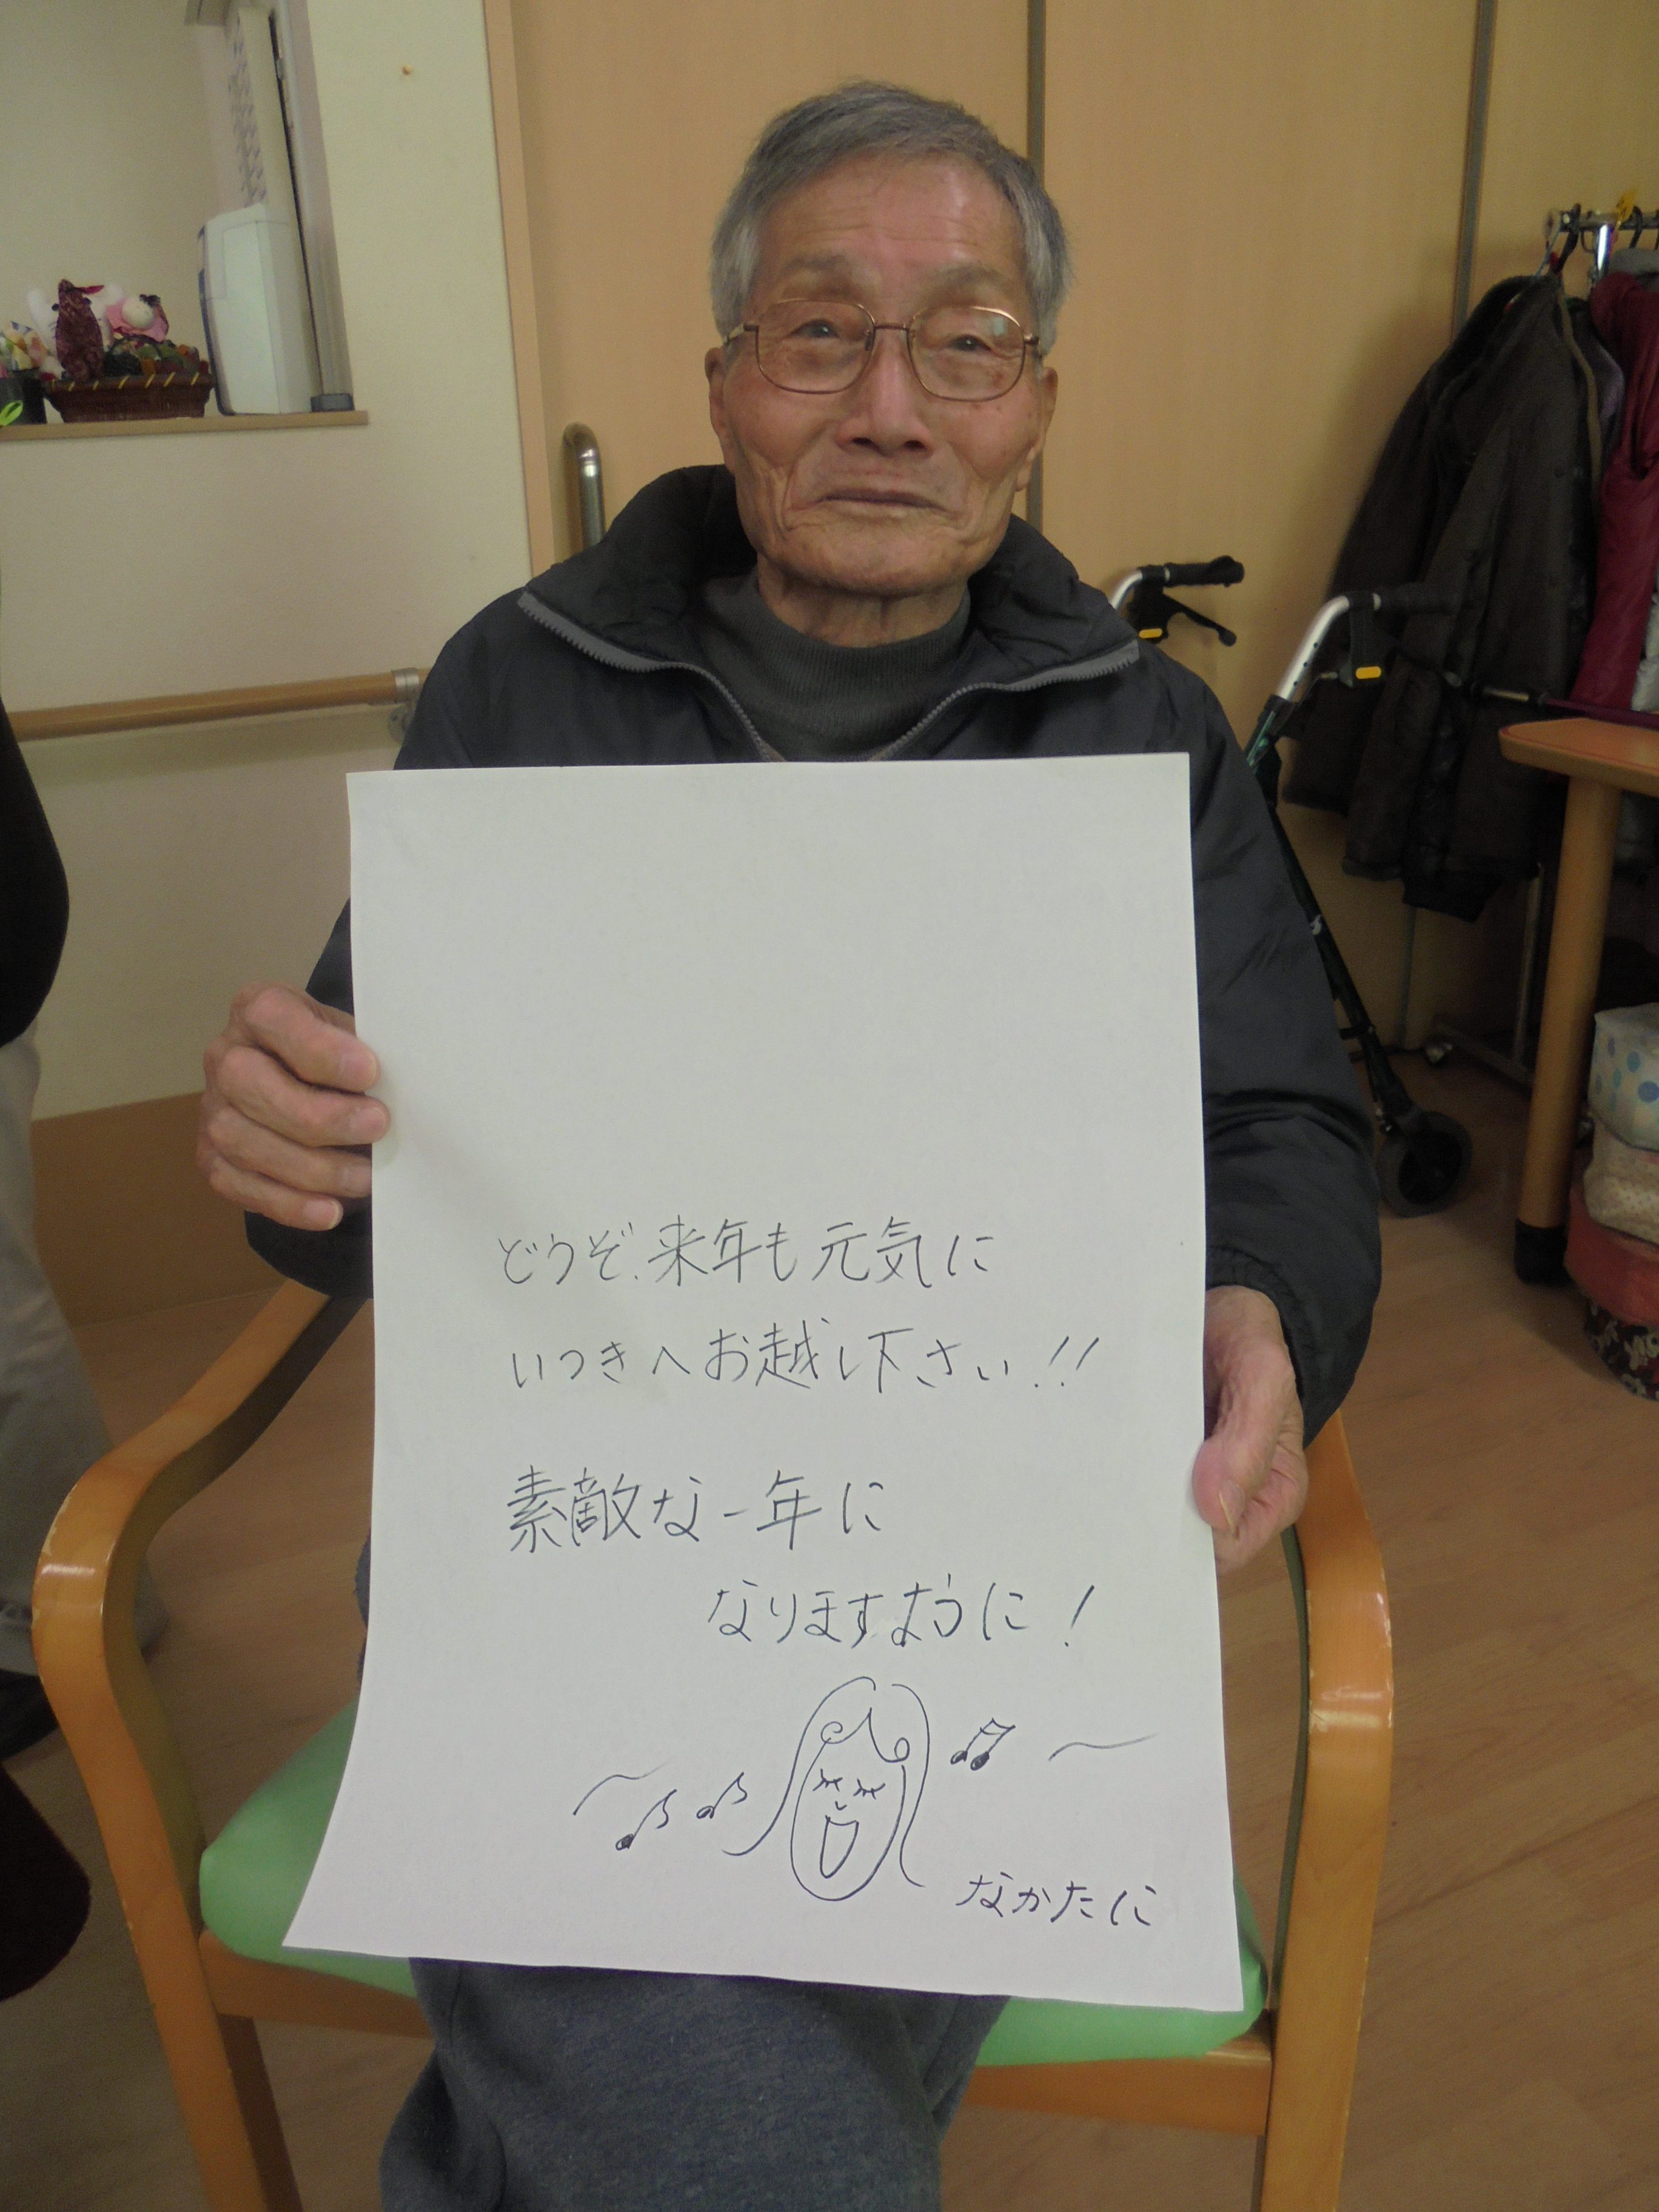 どうぞ、来年も元気に
いつきへお越し下さい!!
素敵な一年に
なりますように!
なかたに